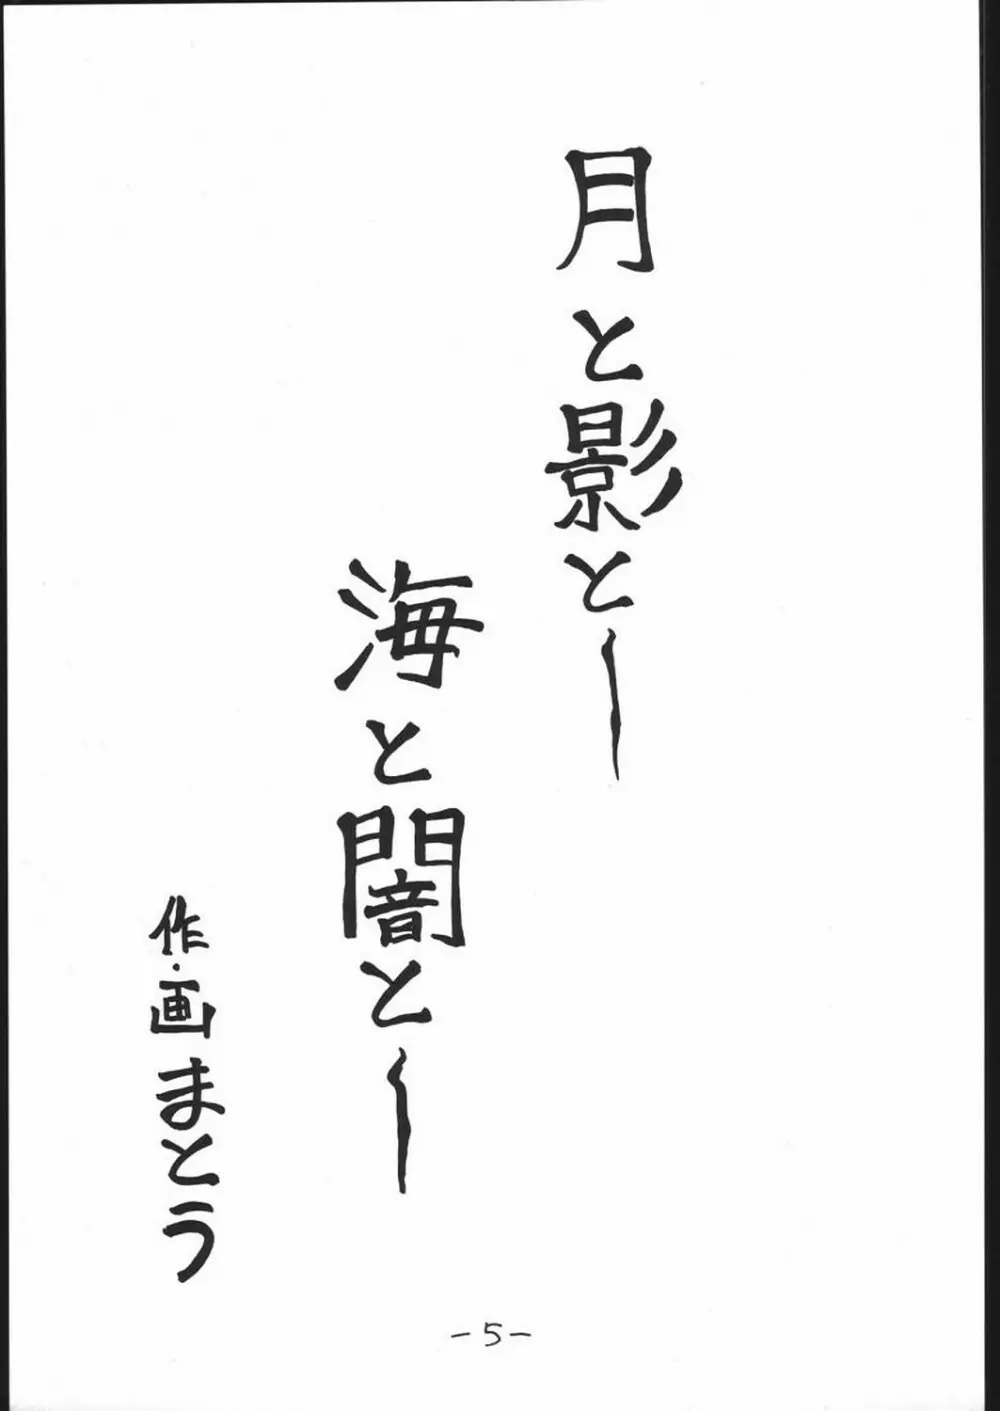 月と影とー
海と闇とー
作・画 まとう
-5-